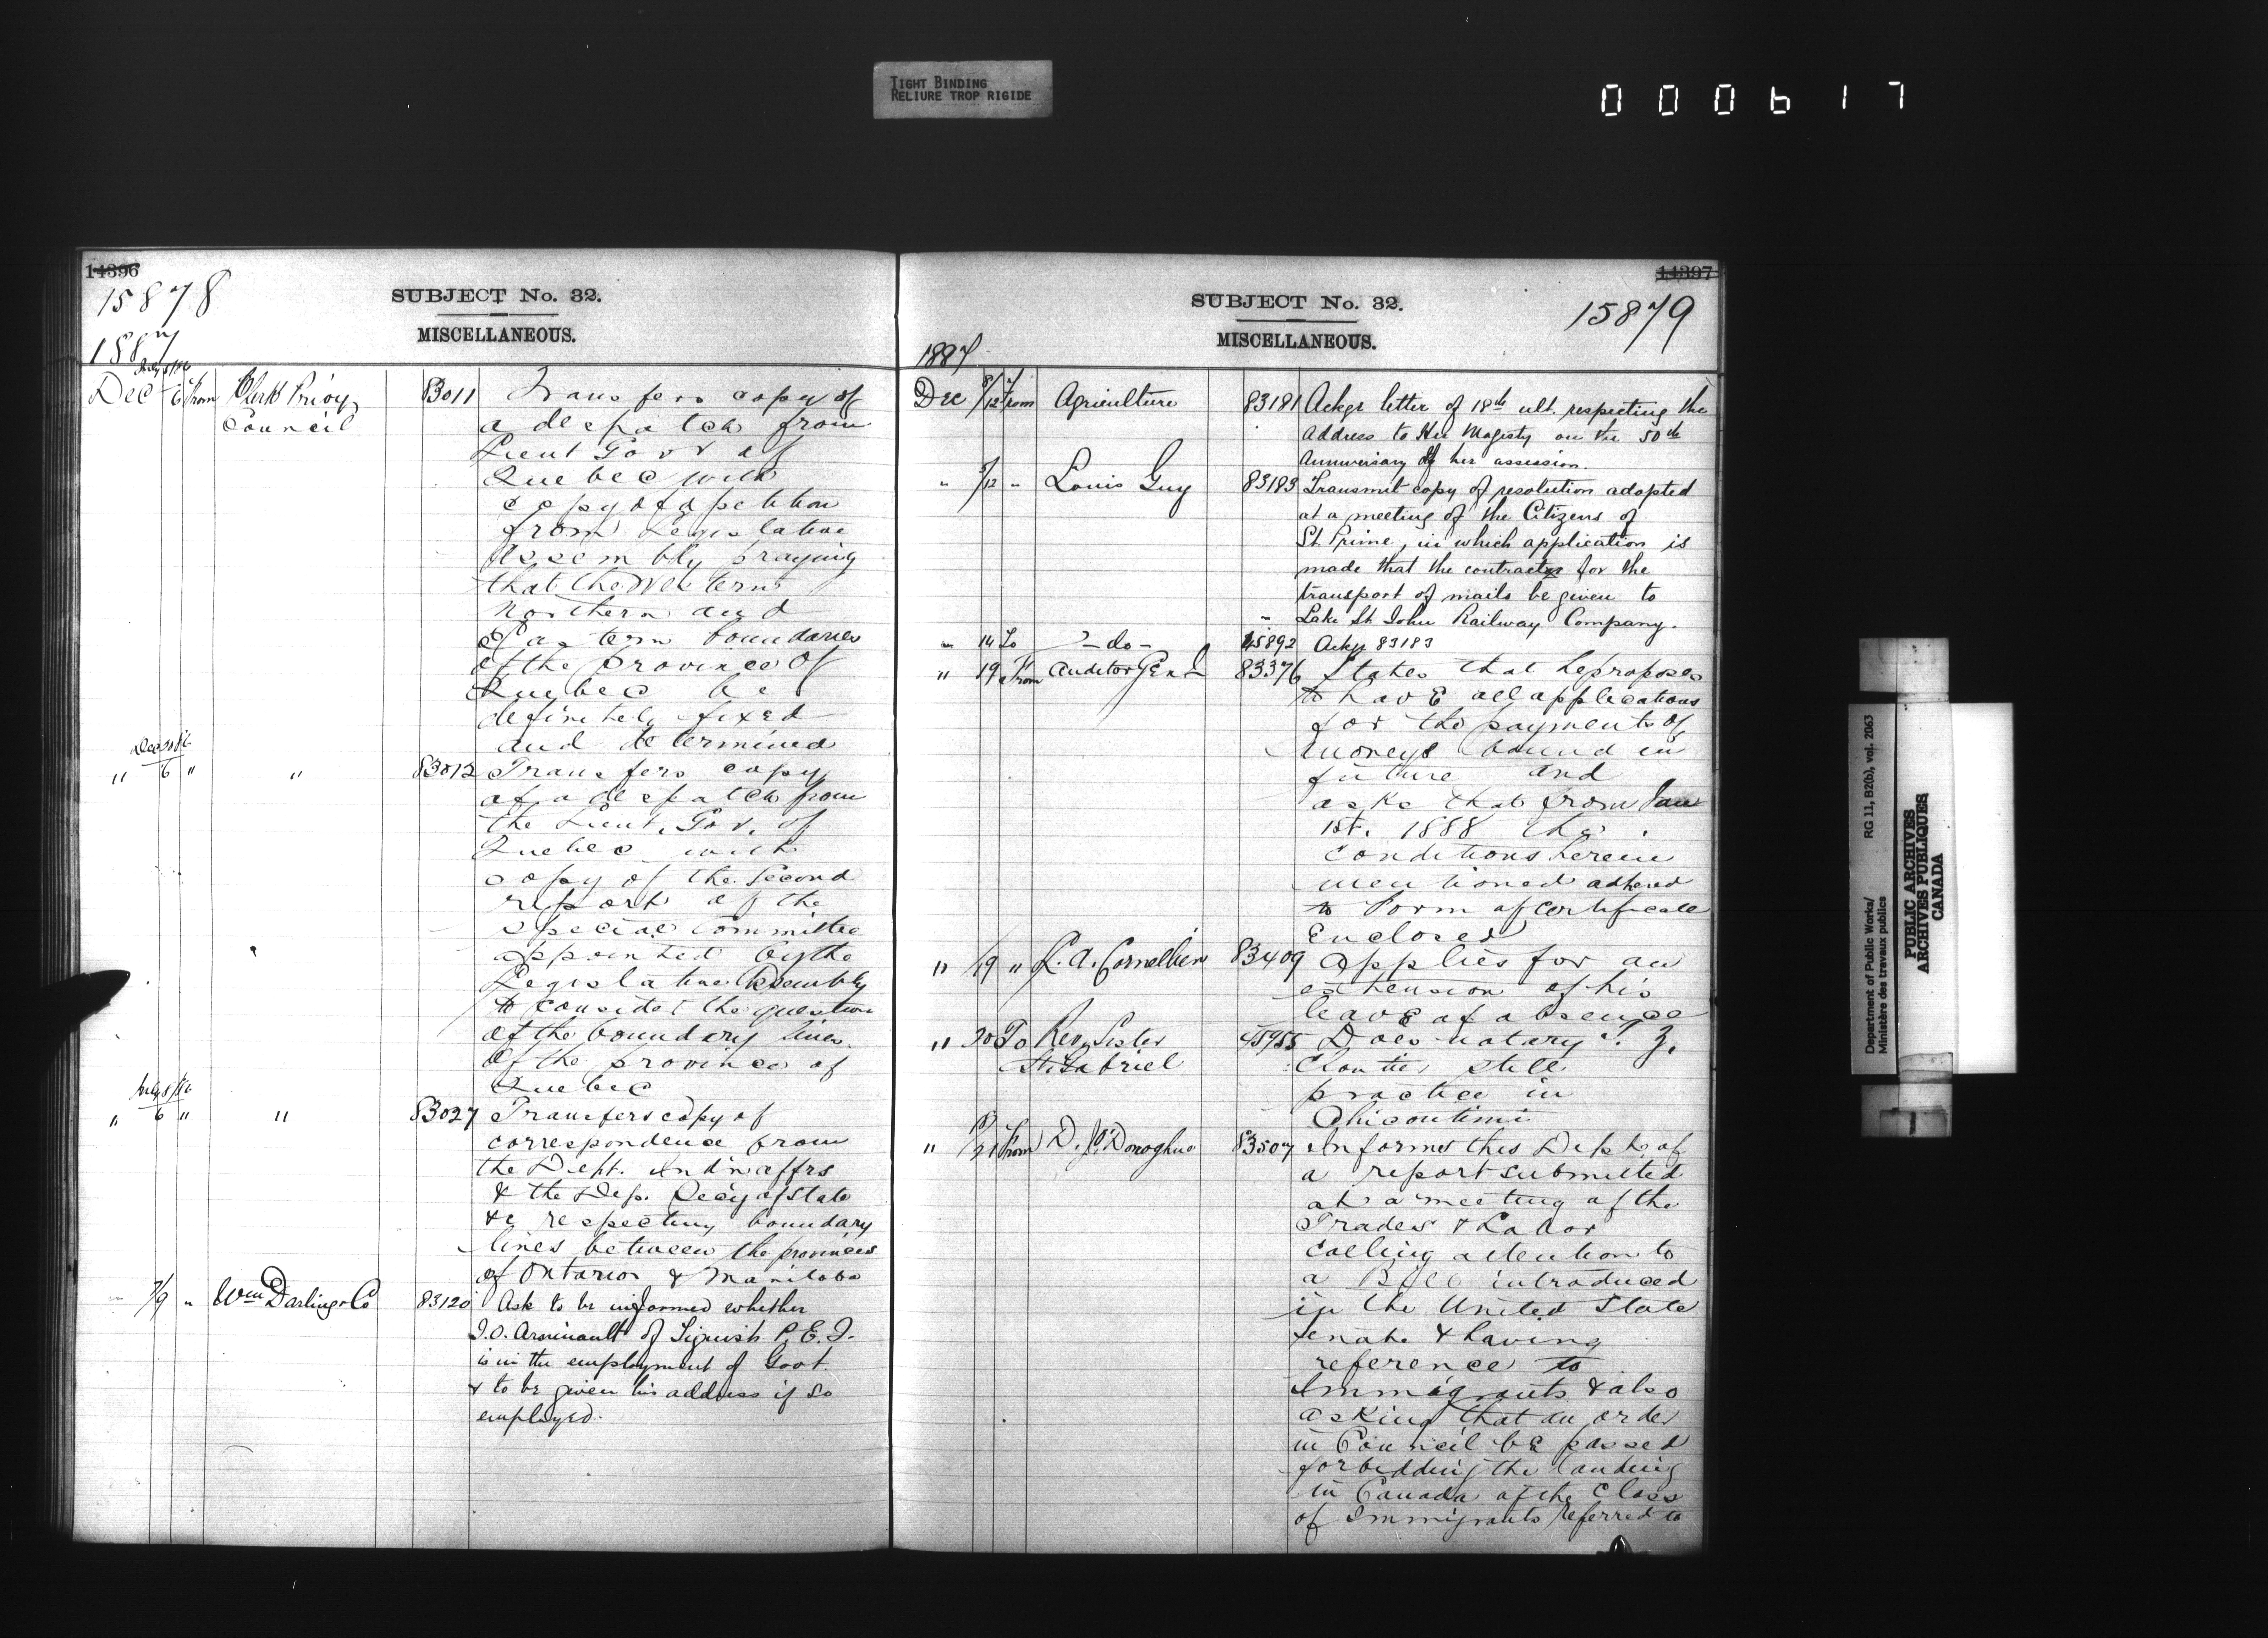 TIGHT BINDING
RELIURE TROP RIGIDE
000617
14396
15878
SUBJECT No. 32.
MISCELLANEOUS.
1887
July 8/86
Dec 6 From Clerk Privy 83011 Transfers copy of
Council a despatch from
Lieut Govr of
Quebec with
copy of a petition
from Legislative
Assembly praying
that the Western
Northern and
Eastern boundaries
of the province of
Quebec be
definitely fixed
and determined
" 6 " " 83012 Transfers copy
of a despatch from
the Lieut. Gov. of
Quebec with
copy of the second
report of the
special Committee
appointed by the
Legislative Assembly
to consider the question
of the boundary lines
of the province of
Quebec
" 6 " " 83027 Transfers copy of
correspondence from
the Dept. Ind'n affrs
& the Dep. Secy of State
&c respecting boundary
lines between the provinces
of Ontario & Manitoba
7/9 " Wm Darling & Co 83120 Ask to be informed whether
J.O. Arsenault of P.E.I.
is in the employment of Govt
& to be given his address if so
employed.
14397
15879
SUBJECT No. 32.
MISCELLANEOUS.
1887
Dec 8/12 From Agriculture 83181 Ackgs letter of 18th ult. respecting the
Address to Her Magesty on the 50th
Anniversary of her assession.
" 5/12 " Louis Guy 83183 Transmit copy of resolution adopted
at a meeting of the Citizens of
St Prime, in which application is
made that the contract for the
transport of mails be given to
Lake St John Railway Company.
" 14 To - do - 45892 Ackg 83183
" 19 From Auditor Genl 83376 States that he proposes
to have all applications
for the payments of
moneys bound in
future and
asks that from Jan
1st. 1888 the
conditions herein
mentioned adhered
to Form of certificate
Enclosed
" 19 " L. A. Cornellier 83409 Applies for an
extension of his
leave of absence
" 20 To Rev. Sister 45955 Does notary T. Z.
St. Gabriel Cloutier still
practice in
Chicoutimi
" 21 From D. J. O'Donoghue 83507 Informs this Dept. of
a report submitted
at a meeting of the
Trades & Labor
calling attention to
a Bill introduced
in the United State
Senate & having
reference to
Immigrants & also
asking that an order
in Council be passed
forbidding the landing
in Canada of the class
of Immigrants referred to
Department of Public Works/
Ministère des travaux publics
RG 11, B2(b), vol. 2063
PUBLIC ARCHIVES
ARCHIVES PUBLIQUES
CANADA